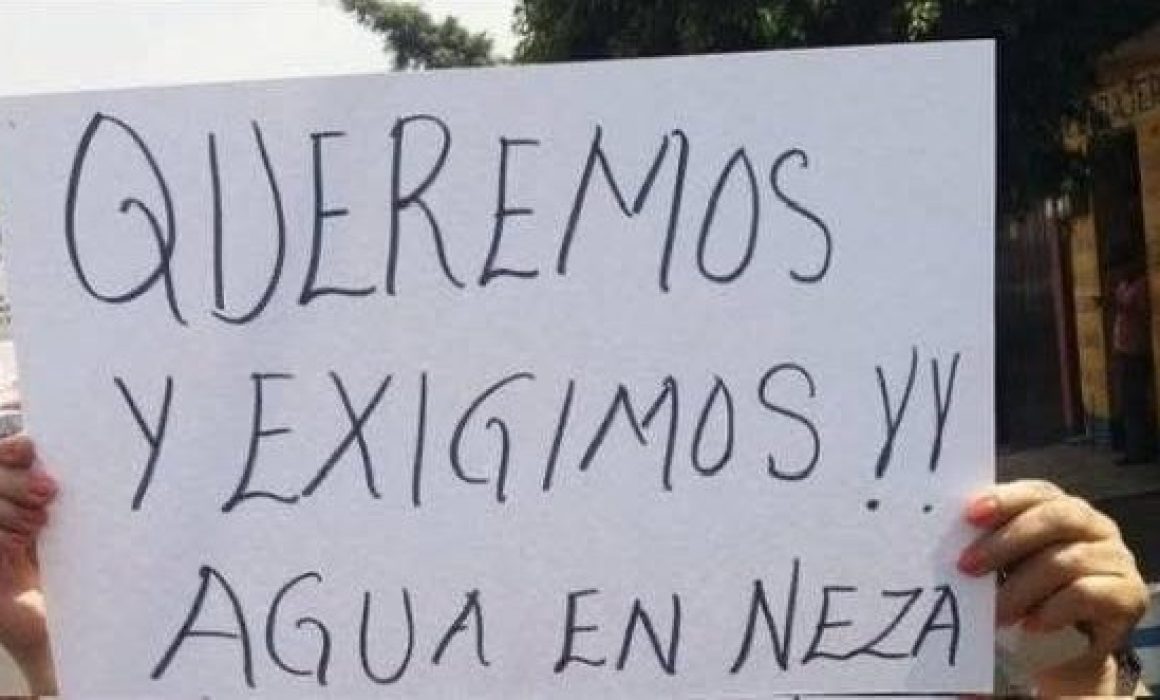 QUEREMOS
Y EXIGIMOS !!
AGUA EN NEZA